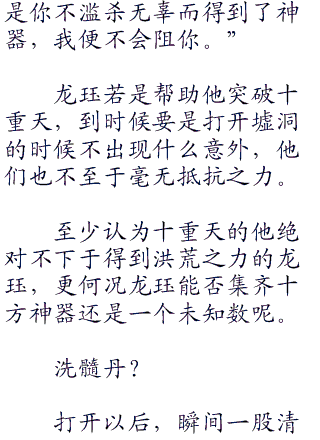 是你不滥杀无辜而得到了神
器，我便不会阻你。”
龙珏若是帮助他突破十
重天，到时候要是打开墟洞
的时候不出现什么意外，他
们也不至于毫无抵抗之力。
至少认为十重天的他绝
对不下于得到洪荒之力的龙
珏，更何况龙珏能否集齐十
方神器还是一个未知数呢。
洗髓丹？
打开以后，瞬间一股清